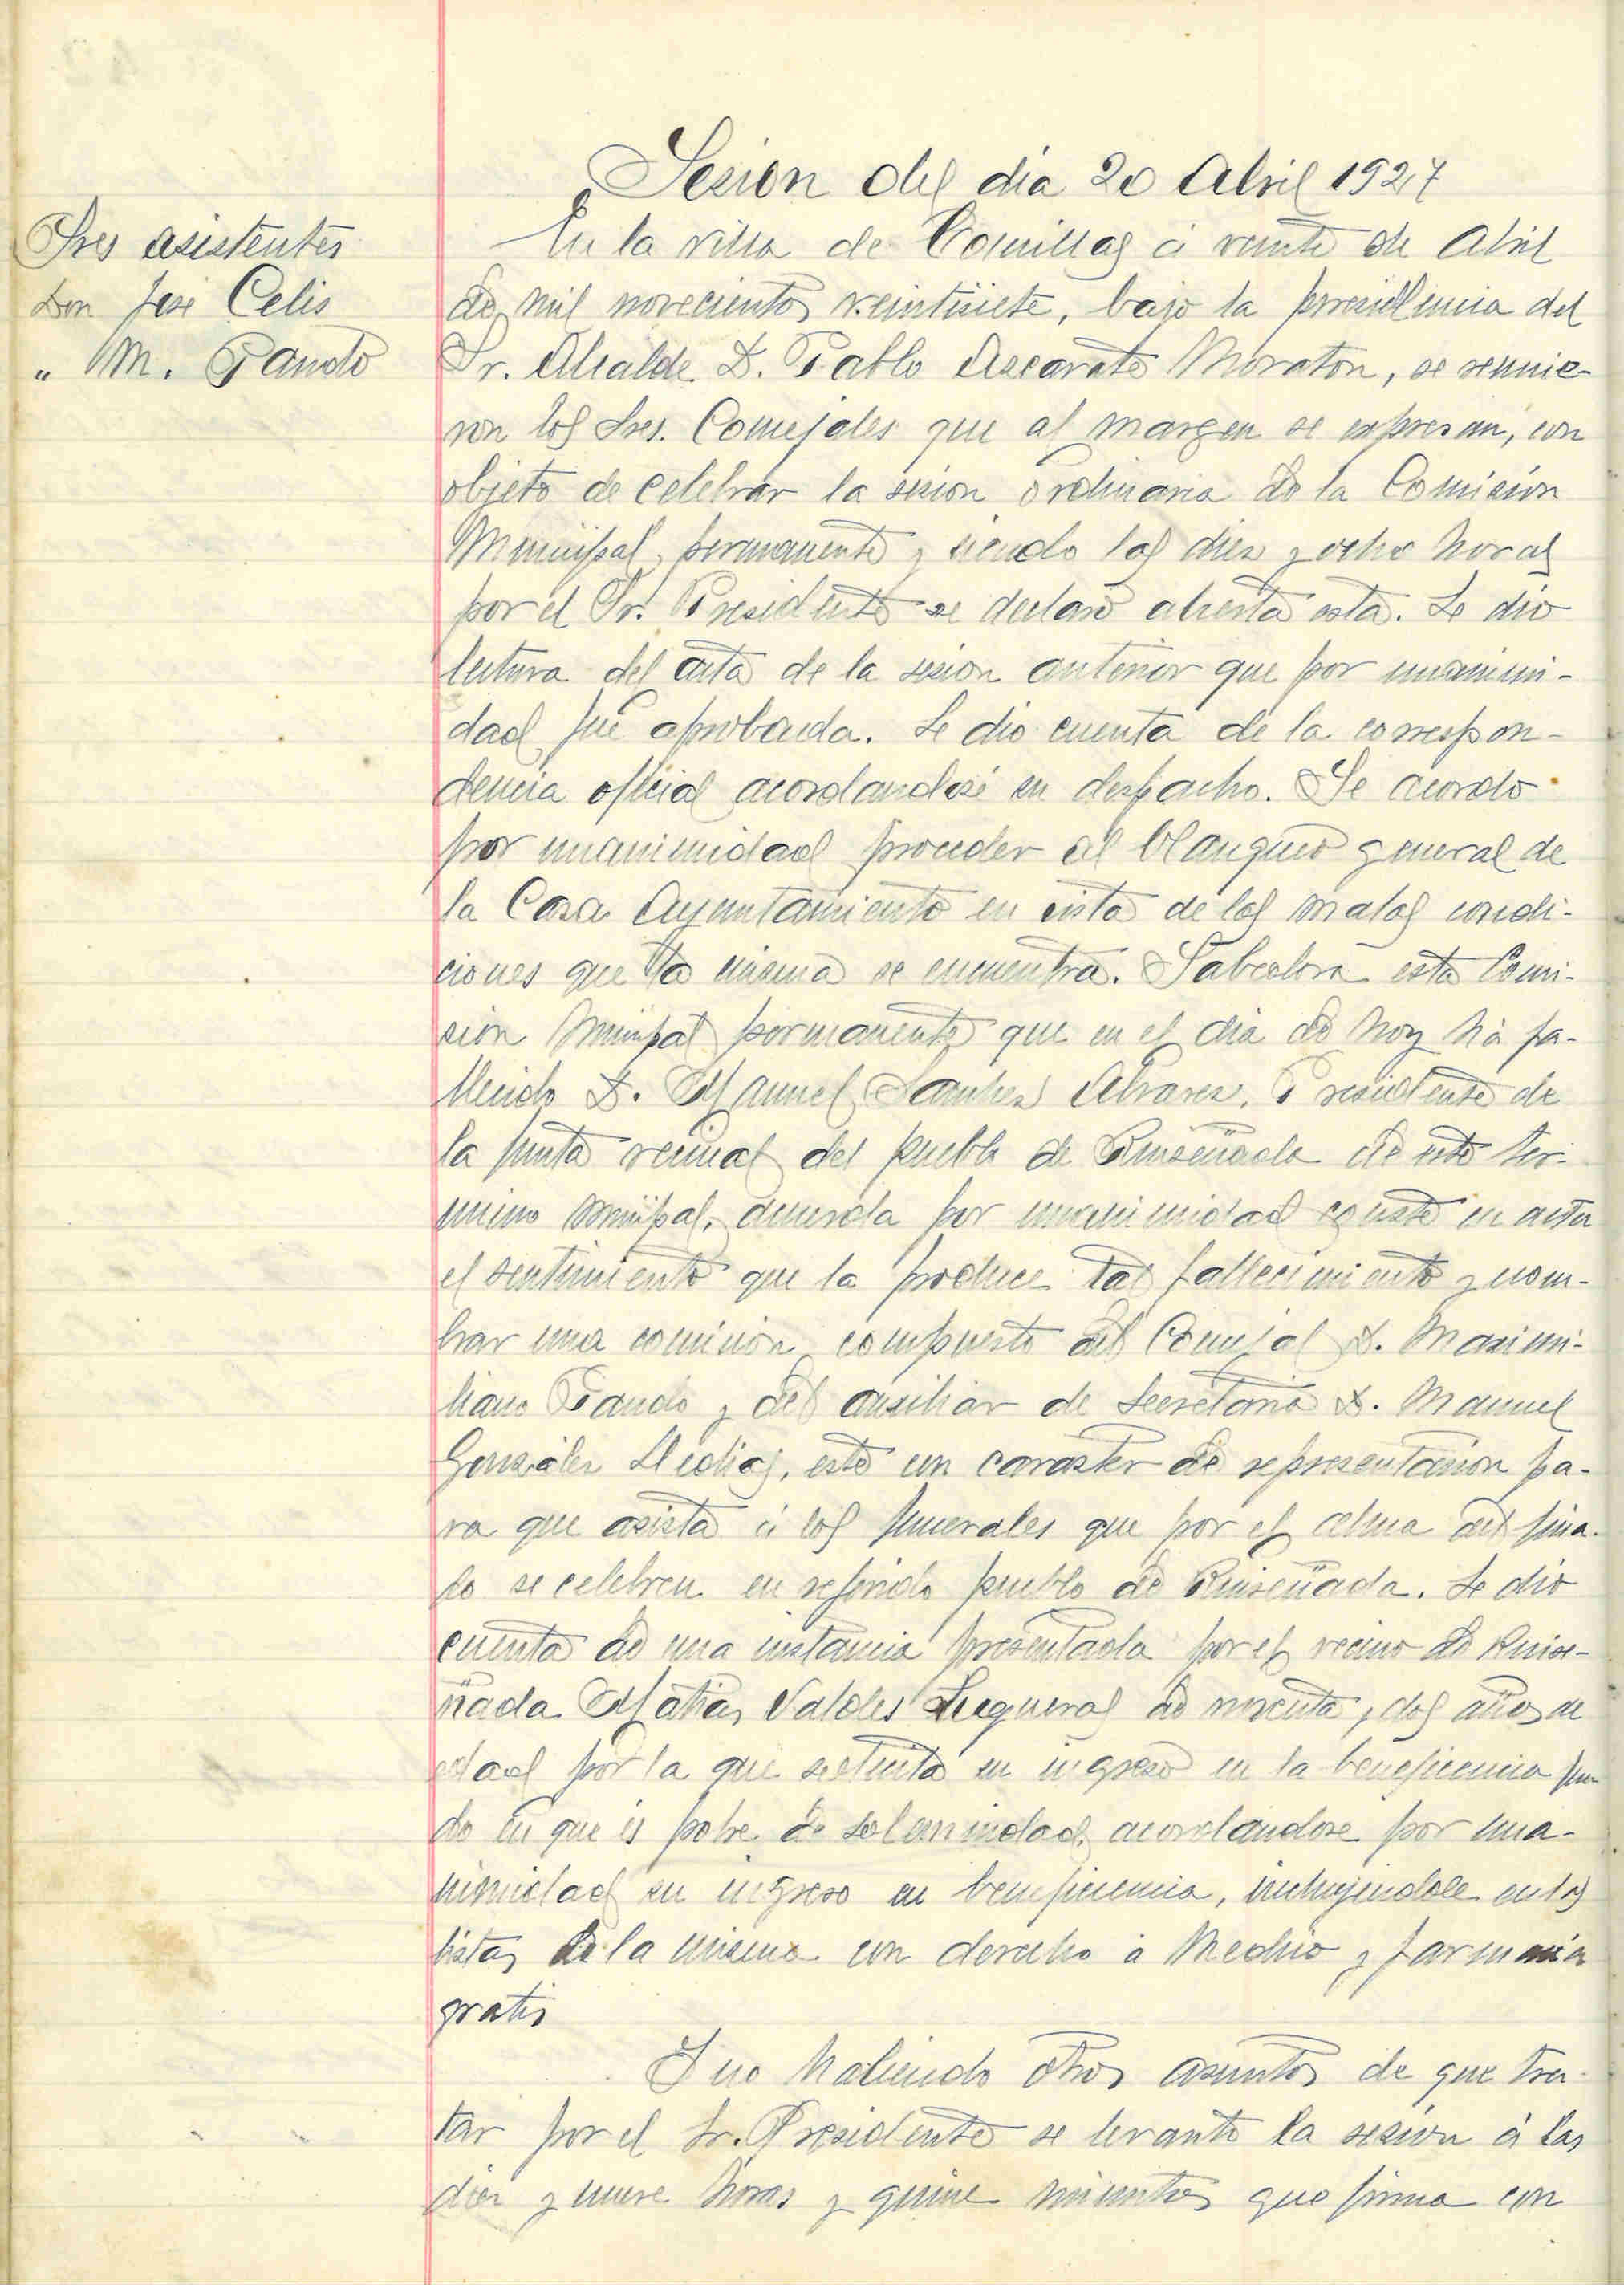 Sesion del dia 20 Abril 1927
Sres asistentes
Don Jose Celis
" M. Pando
En la villa de Comillas á veinte de Abril
de mil novecientos veintisiete, bajo la presidencia del
Sr. Alcalde D. Pablo Ascarate Moraton, se reunie-
ron los Sres. Concejales que al margen se expresan, con
objeto de celebrar la sesion ordinaria de la Comisión
Municipal permanente y siendo las diez y ocho horas
por el Sr. Presidente se declaró abierta esta. Se dio
lectura del acta de la sesion anterior que por unanimi-
dad fué aprobada. Se dio cuenta de la correspon-
dencia oficial acordandose su despacho. Se acordo
por unanimidad proceder al blanqueo general de
la Casa Ayuntamiento en vista de las malas condi-
ciones que la misma se encuentra. Sabedora esta Comi-
sion Municipal permanente que en el dia de hoy há fa-
llecido D. Manuel Sanchez Alvarez, Presidente de
la junta vecinal del pueblo de Ruiseñada de este ter-
mino municipal, acuerda por unanimidad conste en acta
el sentimiento que la produce tal fallecimiento y nom-
brar una comision compuesta del Concejal D. Maximi-
liano Pando y del auxiliar de Secretaria D. Manuel
González, este con caracter de representacion pa-
ra que asista á los funerales que por el alma del fina-
do se celebren en referido pueblo de Ruiseñada. Se dio
cuenta de una instancia presentada por el vecino de Ruise-
ñada Matias Valdes de noventa y dos años de
edad por la que su ingreso en la beneficencia fun-
do en que es pobre de solemnidad, acordandose por una-
nimidad su ingreso en beneficencia, incluyendole en las
listas de la misma con derecho á Medico y farmacia
gratis
Y no habiendo otros asuntos de que tra-
tar por el Sr. Presidente se levanto la sesion á las
diez y nueve horas y quince minutos que firma con